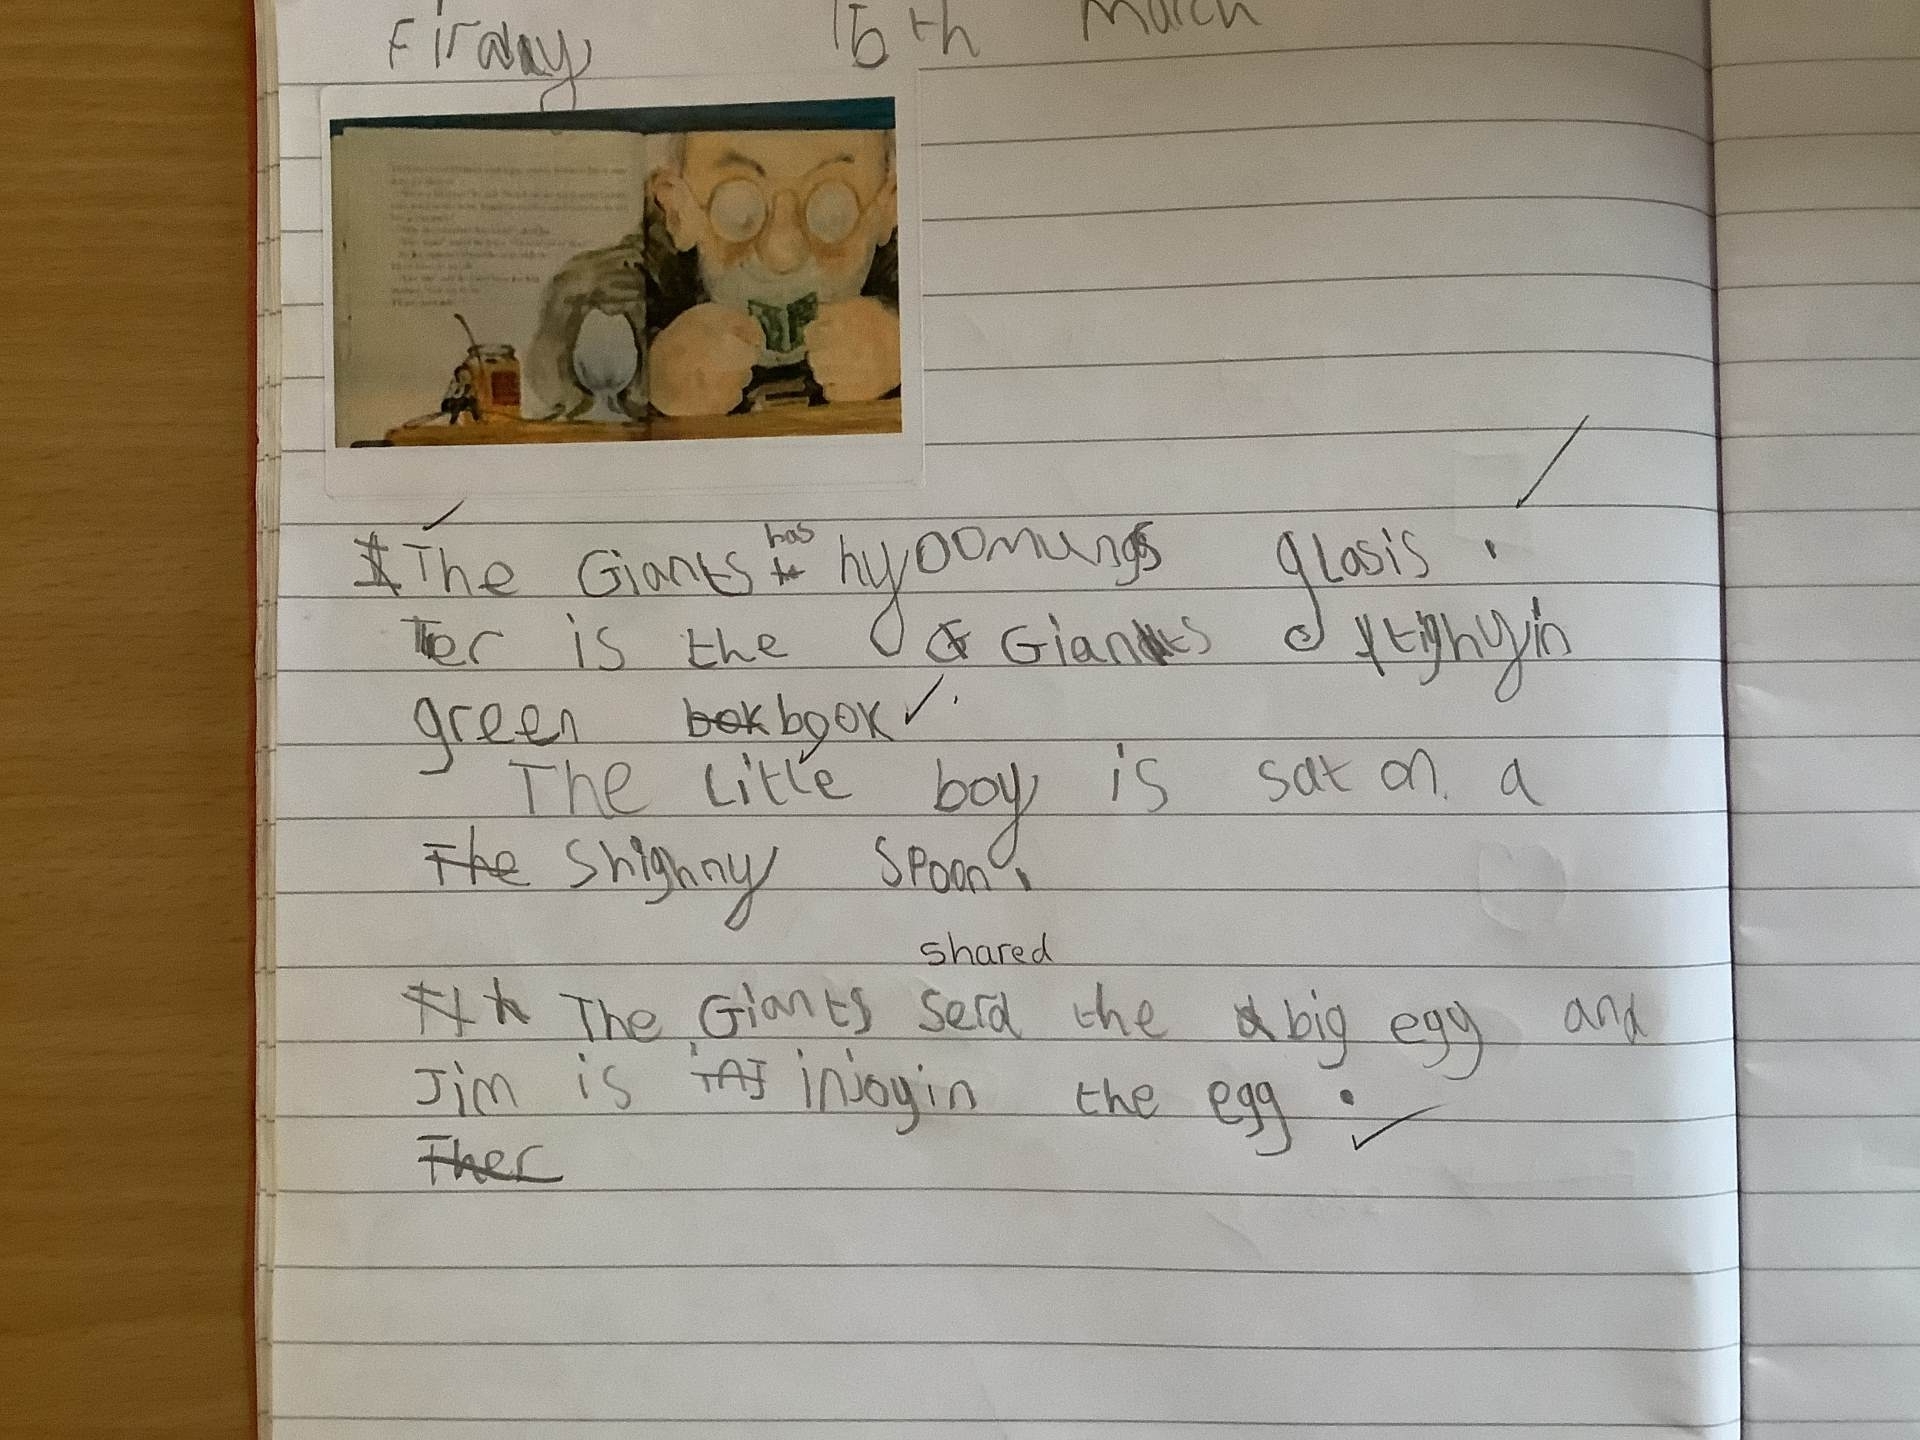 Firday 15th March
The Giants has hyoomungs glasis.
Ter is the Giants tighyin
green bok book.
The Little boy is sat on a
The Shighny Spoon.
shared
The Giants serd the big egg and
Jim is injoyin the egg.
Ther